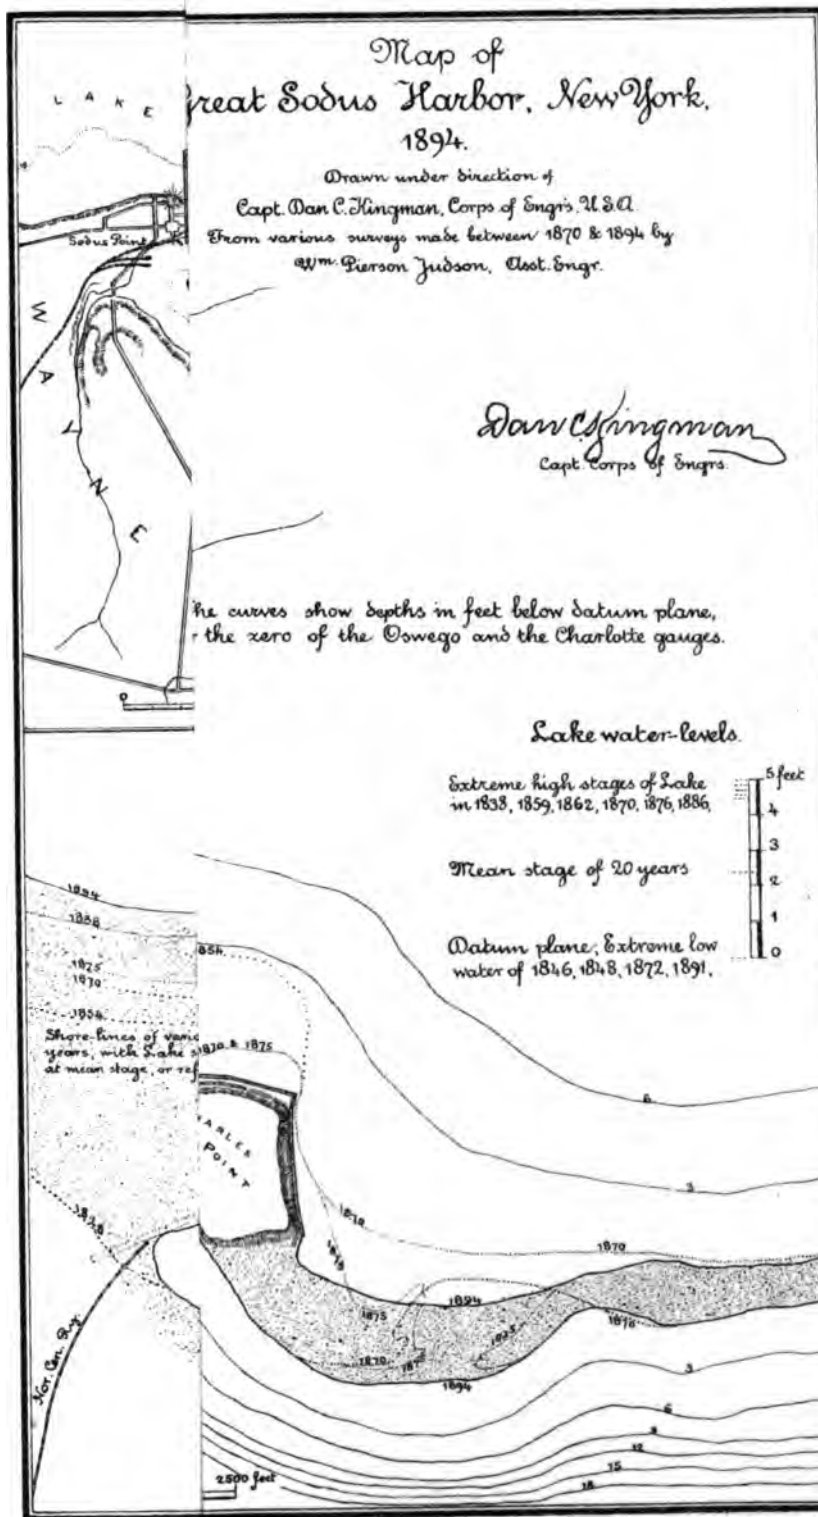 Map of
Great Sodus Harbor, New York.
1894.
Drawn under direction of
Capt. Dan C. Kingman, Corps of Engrs, U.S.A.
From various surveys made between 1870 & 1894 by
Wm. Pierson Judson, Asst. Engr.
LAKE
Sodus Point
WAYNE
Dan C. Kingman
Capt. Corps of Engrs.
he curves show depths in feet below datum plane,
the zero of the Oswego and the Charlotte gauges.
0
Lake water-levels.
Extreme high stages of Lake
in 1838, 1859, 1862, 1870, 1876, 1886,
5 feet
4
3
Mean stage of 20 years
2
1
Datum plane, Extreme low
water of 1846, 1848, 1872, 1891.
0
1894
1888
1875
1870
1854
854
Shore-lines of vario
years, with Lake s
at mean stage, or re
1870 & 1875
ARLES
POINT
6
3
1878
1870
1870
1875
1894
1875
1875
1870
1870
1875
1894
Nor. Cen. Ry.
3
6
9
12
15
18
2500 feet